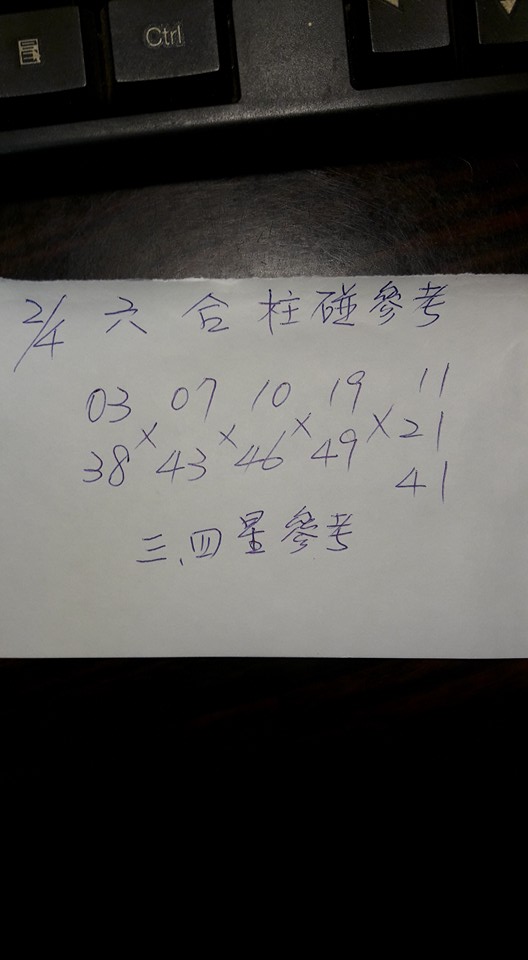 Ctrl
2/4 六合柱碰參考
03 07 10 19 11
× × × × 21
38 43 46 49 41
三、四星參考